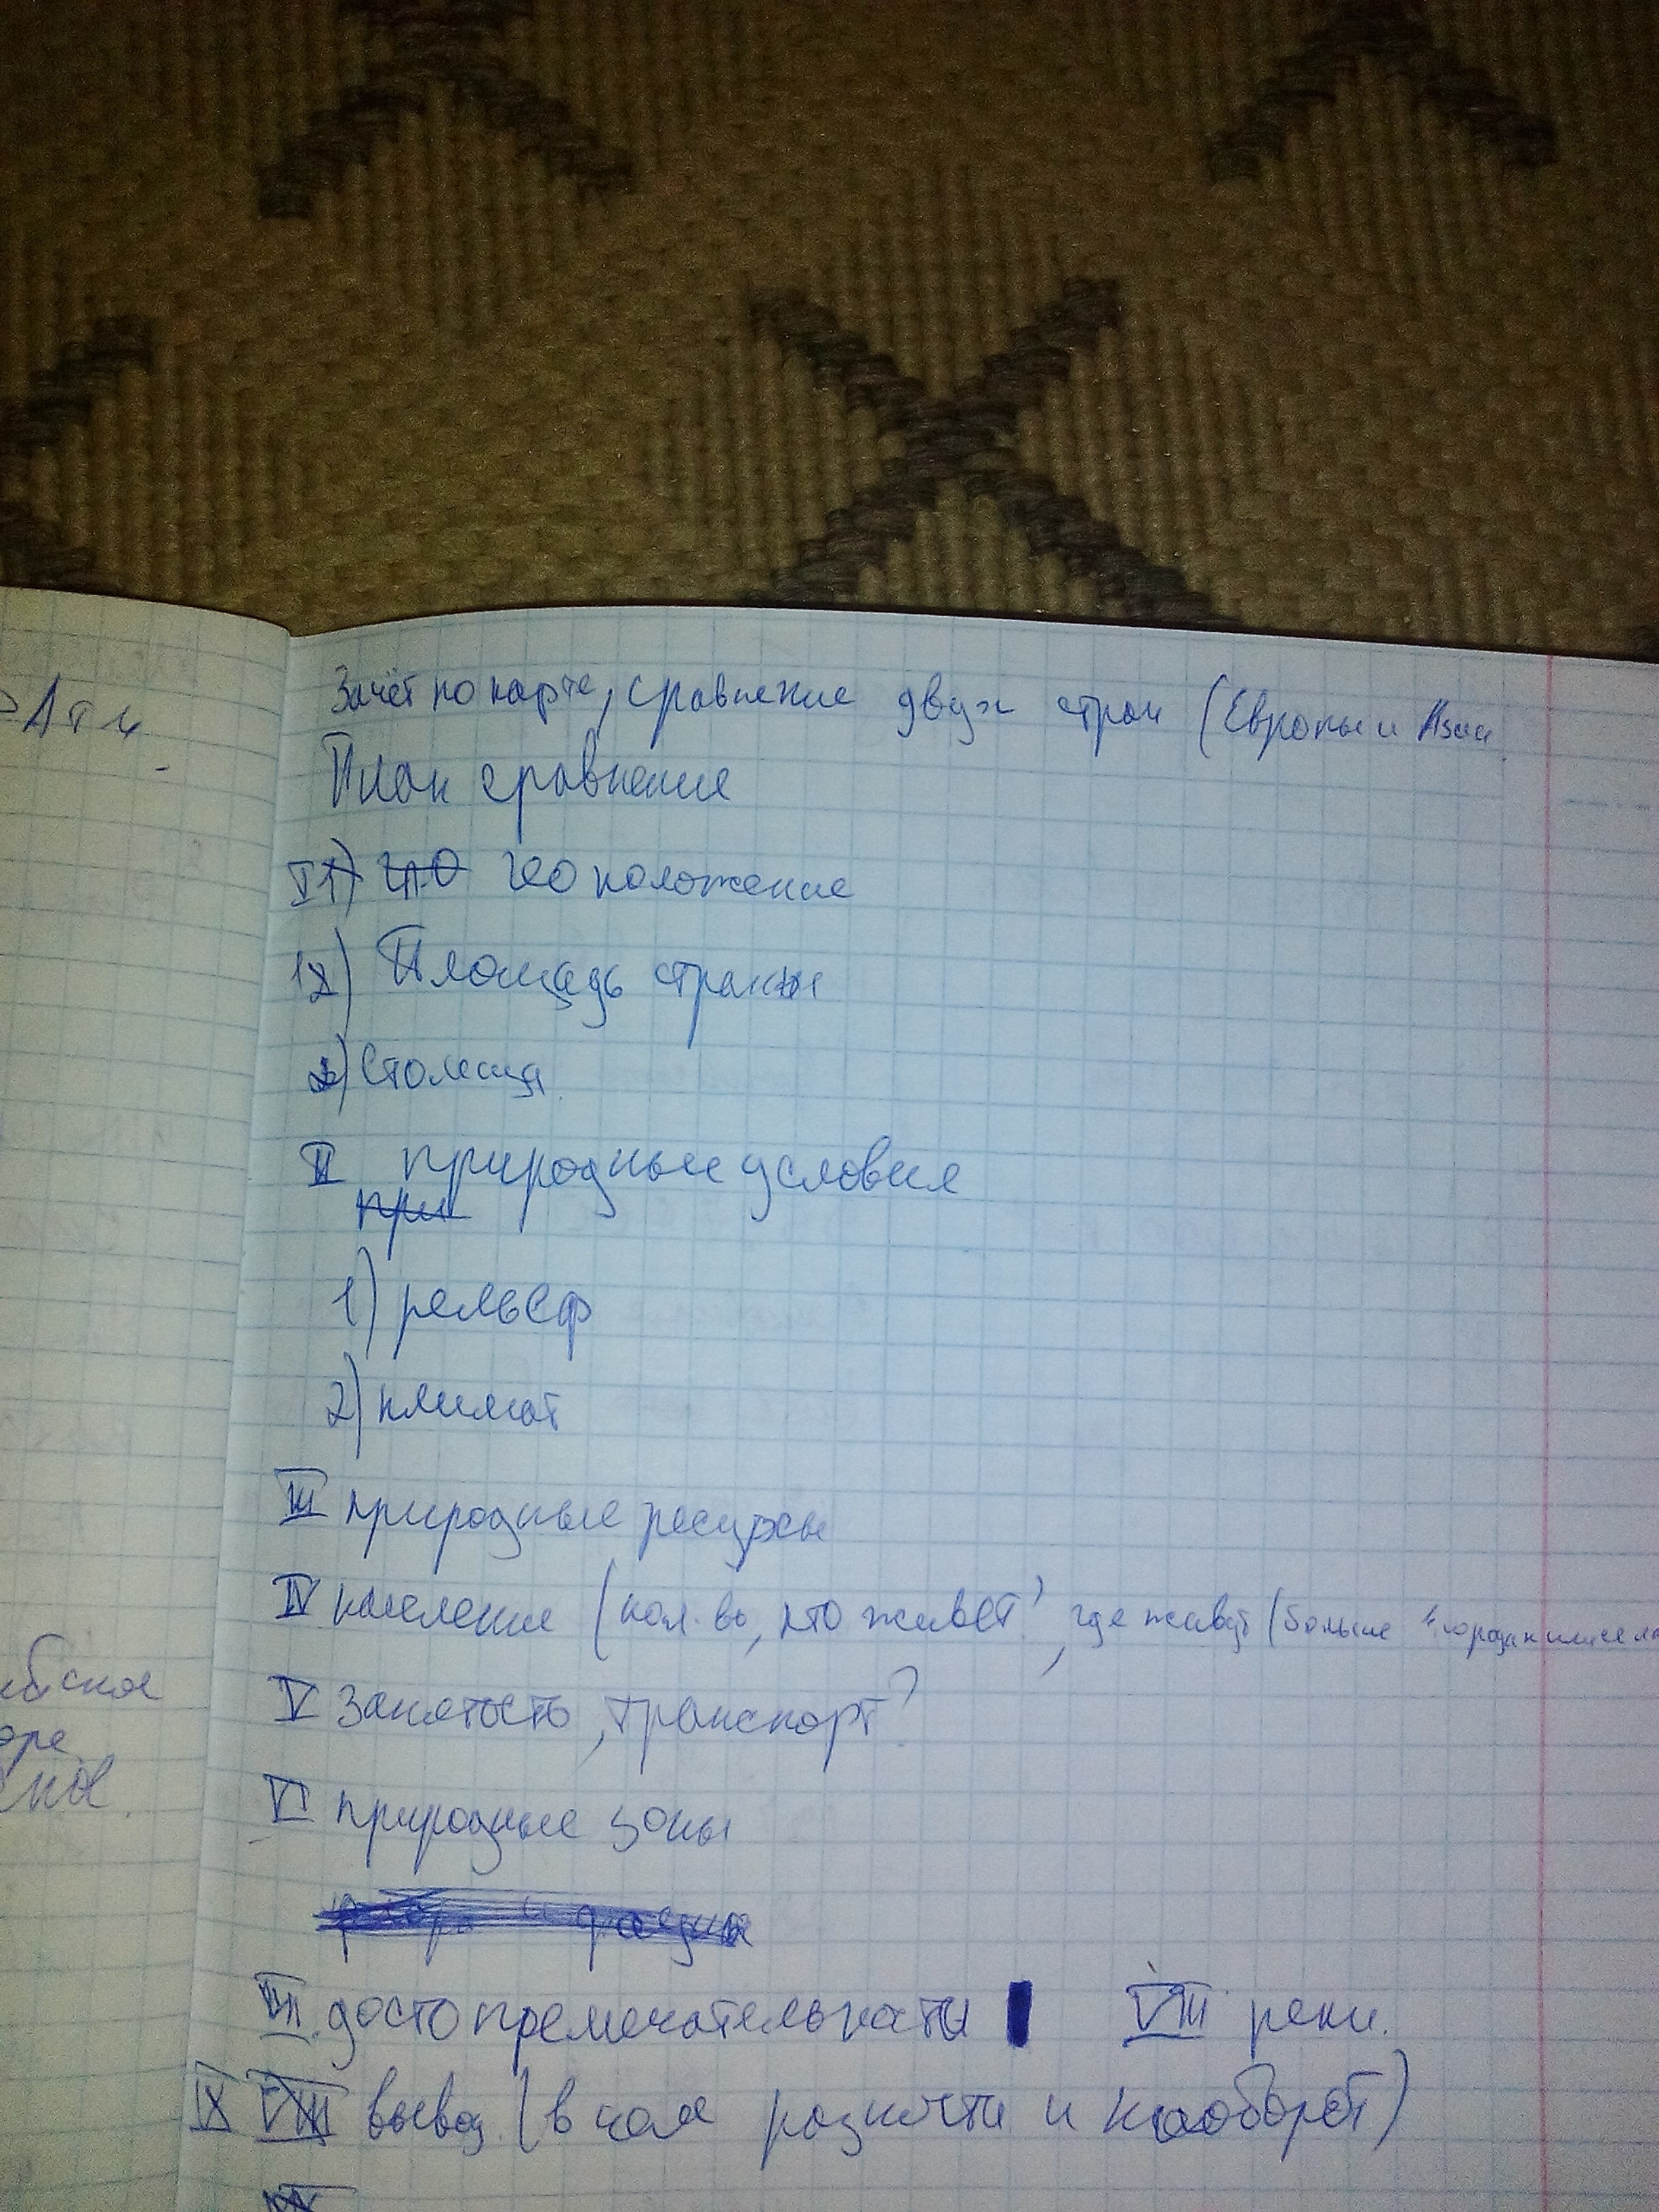 Атл
бское
оре
ное.
Зачёт по карте, сравнение двух стран (Европы и Азии
План сравнения
I 1) ГПО гео положение
1) Площадь страны
2) Столица
II природные условия
при
1) рельеф
2) климат
III природные ресурсы
IV население (кол-во, кто живёт?, где живут (больше
V Занятость, транспорт?
VI природные зоны
флора и фауна
VII достопремечательности VIII реки.
IX VIII вывод (в чём разности и наоборот)